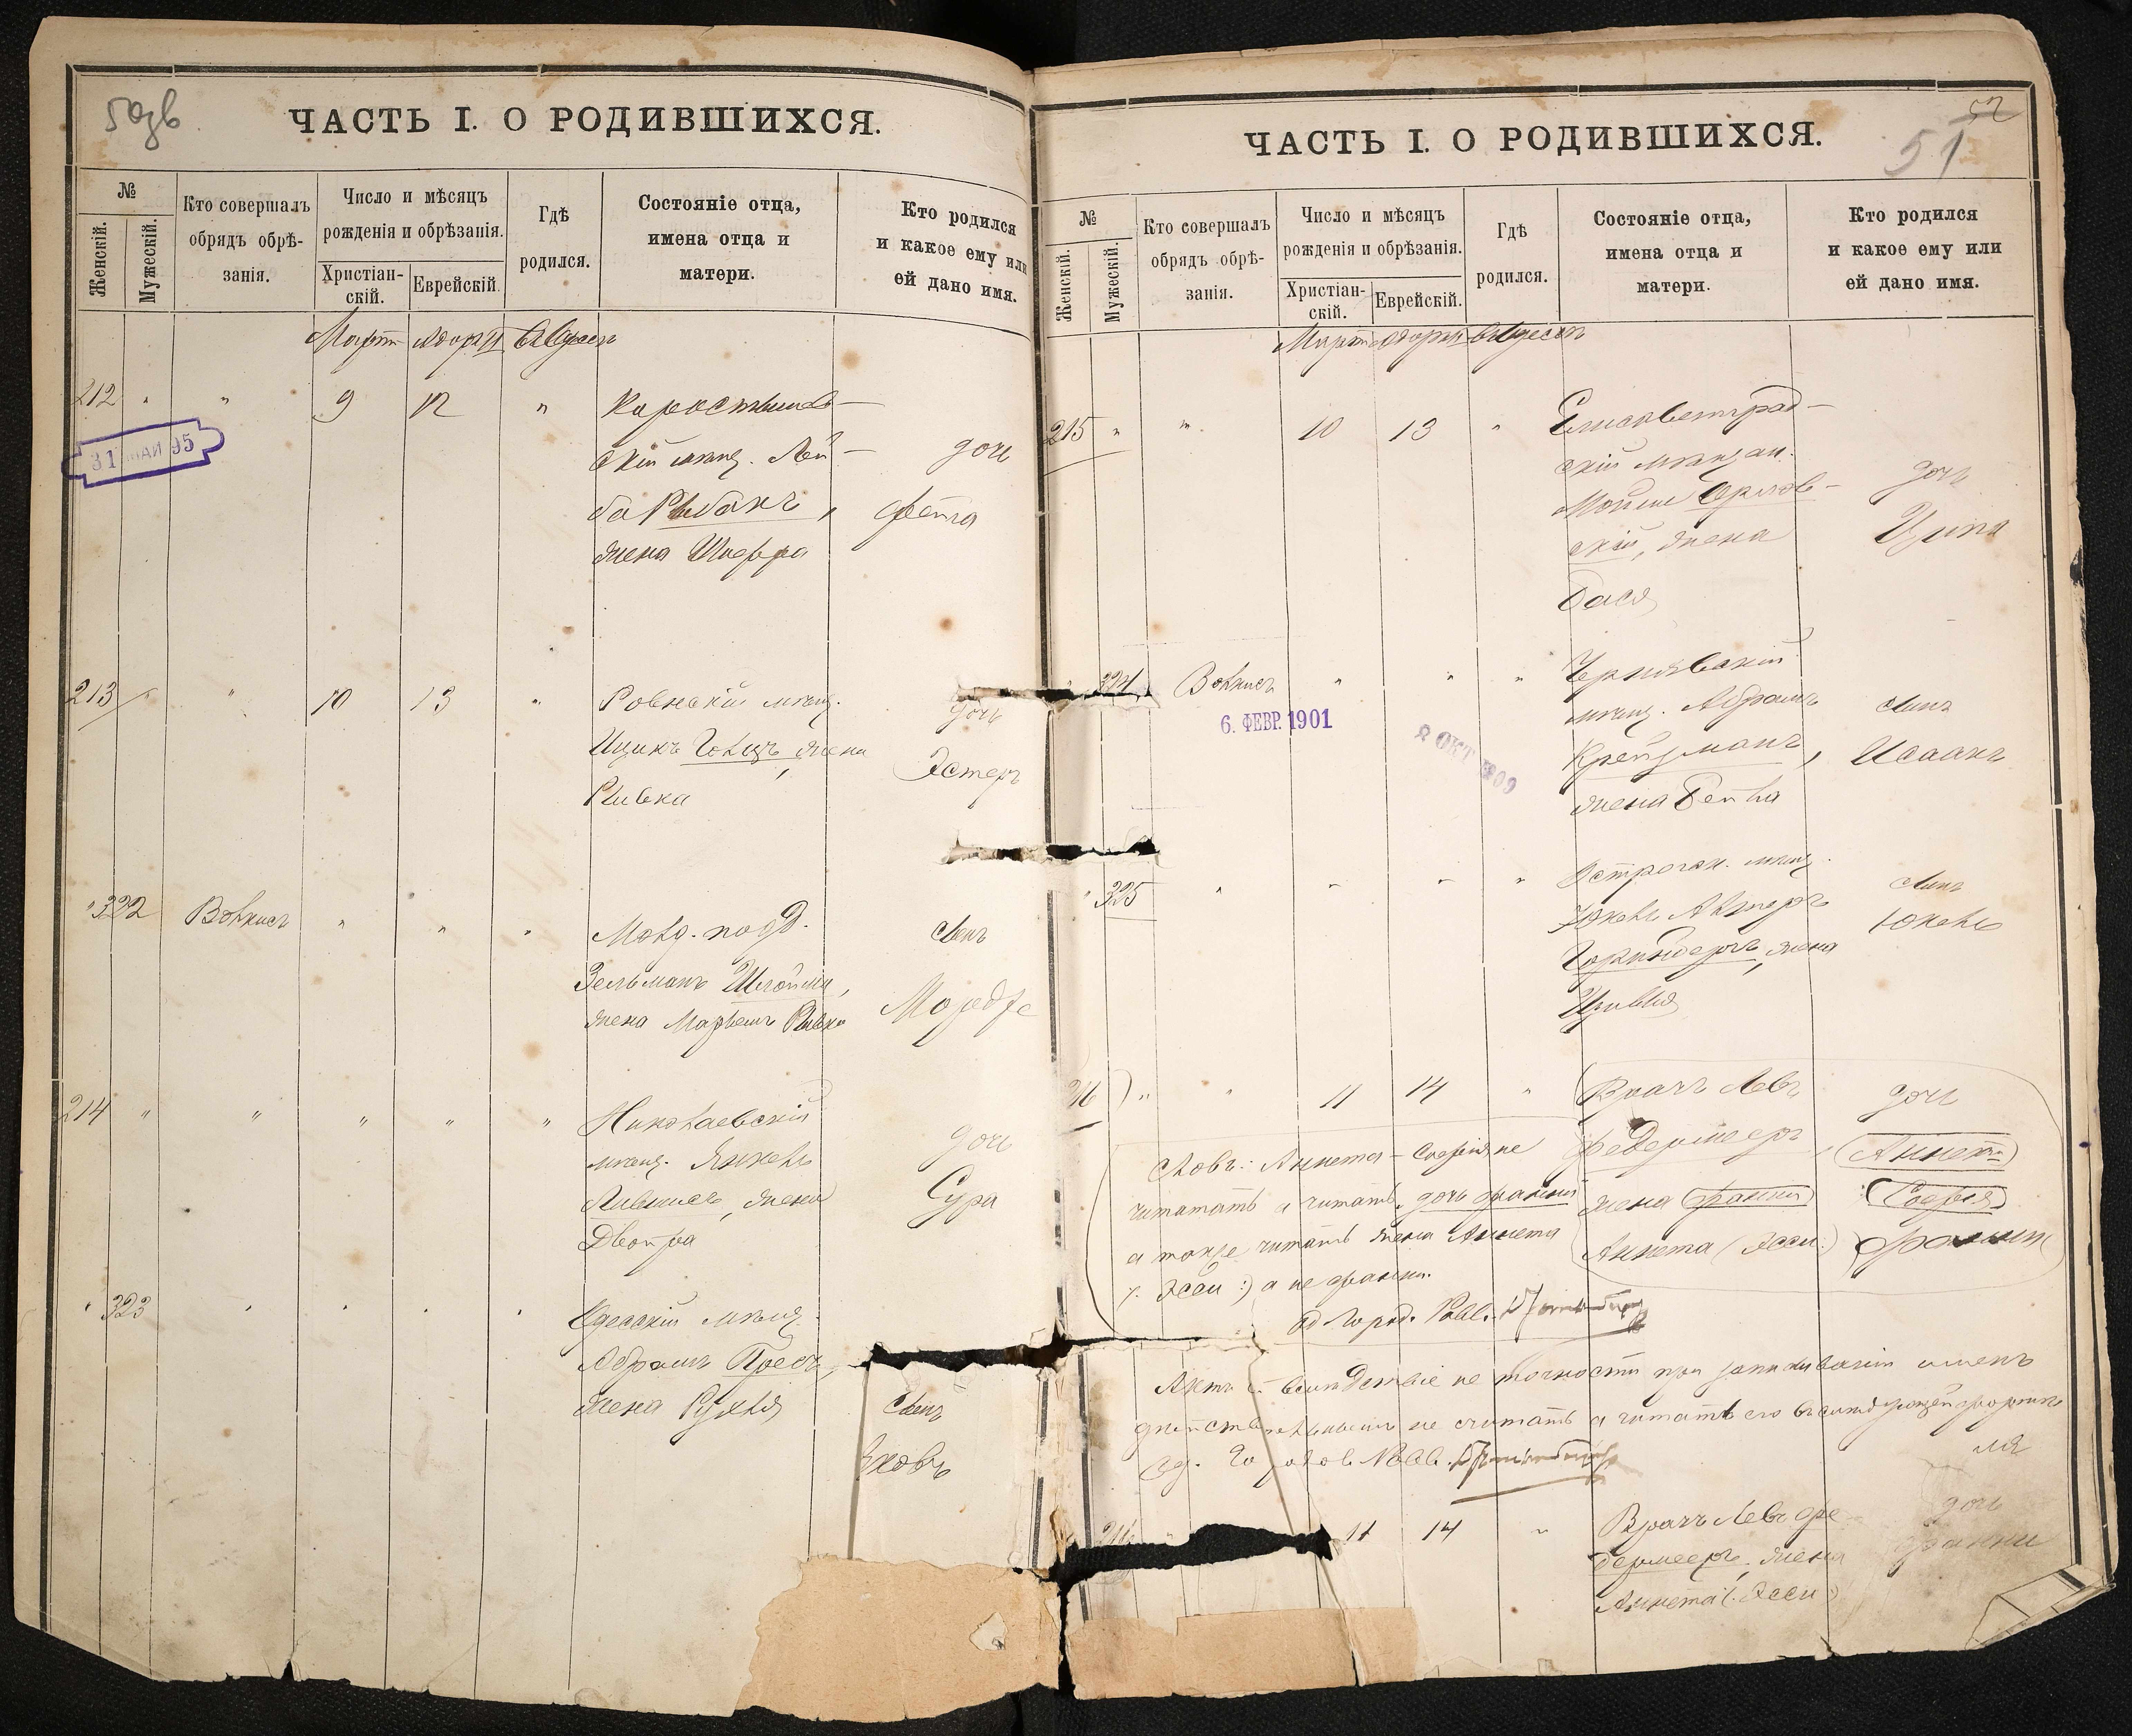 50зв
ЧАСТЬ I. О РОДИВШИХСЯ.
№
Женскій.
Мужескій.
Кто совершалъ
обрядъ обрѣ-
занія.
Число и мѣсяцъ
рожденія и обрѣзанія.
Христіан-
скій.
Еврейскій.
Гдѣ
родился.
Состояніе отца,
имена отца и
матери.
Кто родился
и какое ему или
ей дано имя.
Мартъ Адоръ II въ Одессѣ
212 " " 9 12 " Коростышев-
31 МАЙ 95
скій мѣщ. Лей-
ба Рыбакъ,
жена Шифра
дочь
Фейга
213 " " 10 13 " Ровенскій мѣщ.
Ицикъ Гольцъ, жена
Рывка
дочь
Эстеръ
" 322 Вольмисъ " " " Молд. подд.
Зельманъ Шлойма,
жена Марьемъ Рывка
сынъ
Мордхе
214 " " " " " Николаевскій
мѣщ. Янкель
жена
Двойра
дочь
Сура
" 323 " " " " Одесскій мѣщ.
Абрамъ Пресъ,
жена Рухля
сынъ
Яковъ
52
51
ЧАСТЬ I. О РОДИВШИХСЯ.
№
Женскій.
Мужескій.
Кто совершалъ
обрядъ обрѣ-
занія.
Число и мѣсяцъ
рожденія и обрѣзанія.
Христіан-
скій.
Еврейскій.
Гдѣ
родился.
Состояніе отца,
имена отца и
матери.
Кто родился
и какое ему или
ей дано имя.
Мартъ Адоръ II въ Одессѣ
215 " " 10 13 " Елисаветград-
скій мѣщан.
Мойше Орлов-
скій, жена
Бася
дочь
Ципа
" 324 Вольмисъ " " " Чернявскій
6. ФЕВР. 1901
2 ОКТ 1909
мѣщ. Абрамъ
Крейцманъ,
жена Бейла
сынъ
Исаакъ
" 325 " " " " Острогск. мѣщ.
Юкель Альтеръ
жена
Цивья
сынъ
Юкель
216 " " 11 14 " Врачъ Левъ
Федермееръ,
жена Фанни
Аннета (: Эсси :)
дочь
Аннета
Софья
Фанни
Словъ: Аннета-Софья не
читать а читать дочь Фанни
а также читать жена Аннета
(: Эсси :) а не Фанни.
Од. Город. Равв.
Актъ вслѣдствіе не точности при записываніи именъ
дѣйствительнымъ не считать а читать его въ слѣдующей формѣ
Од. Городов. Равв.
216 " 11 14 " Врачъ Левъ Фе-
дермееръ, жена
Аннета (: Эсси :)
дочь
Фанни